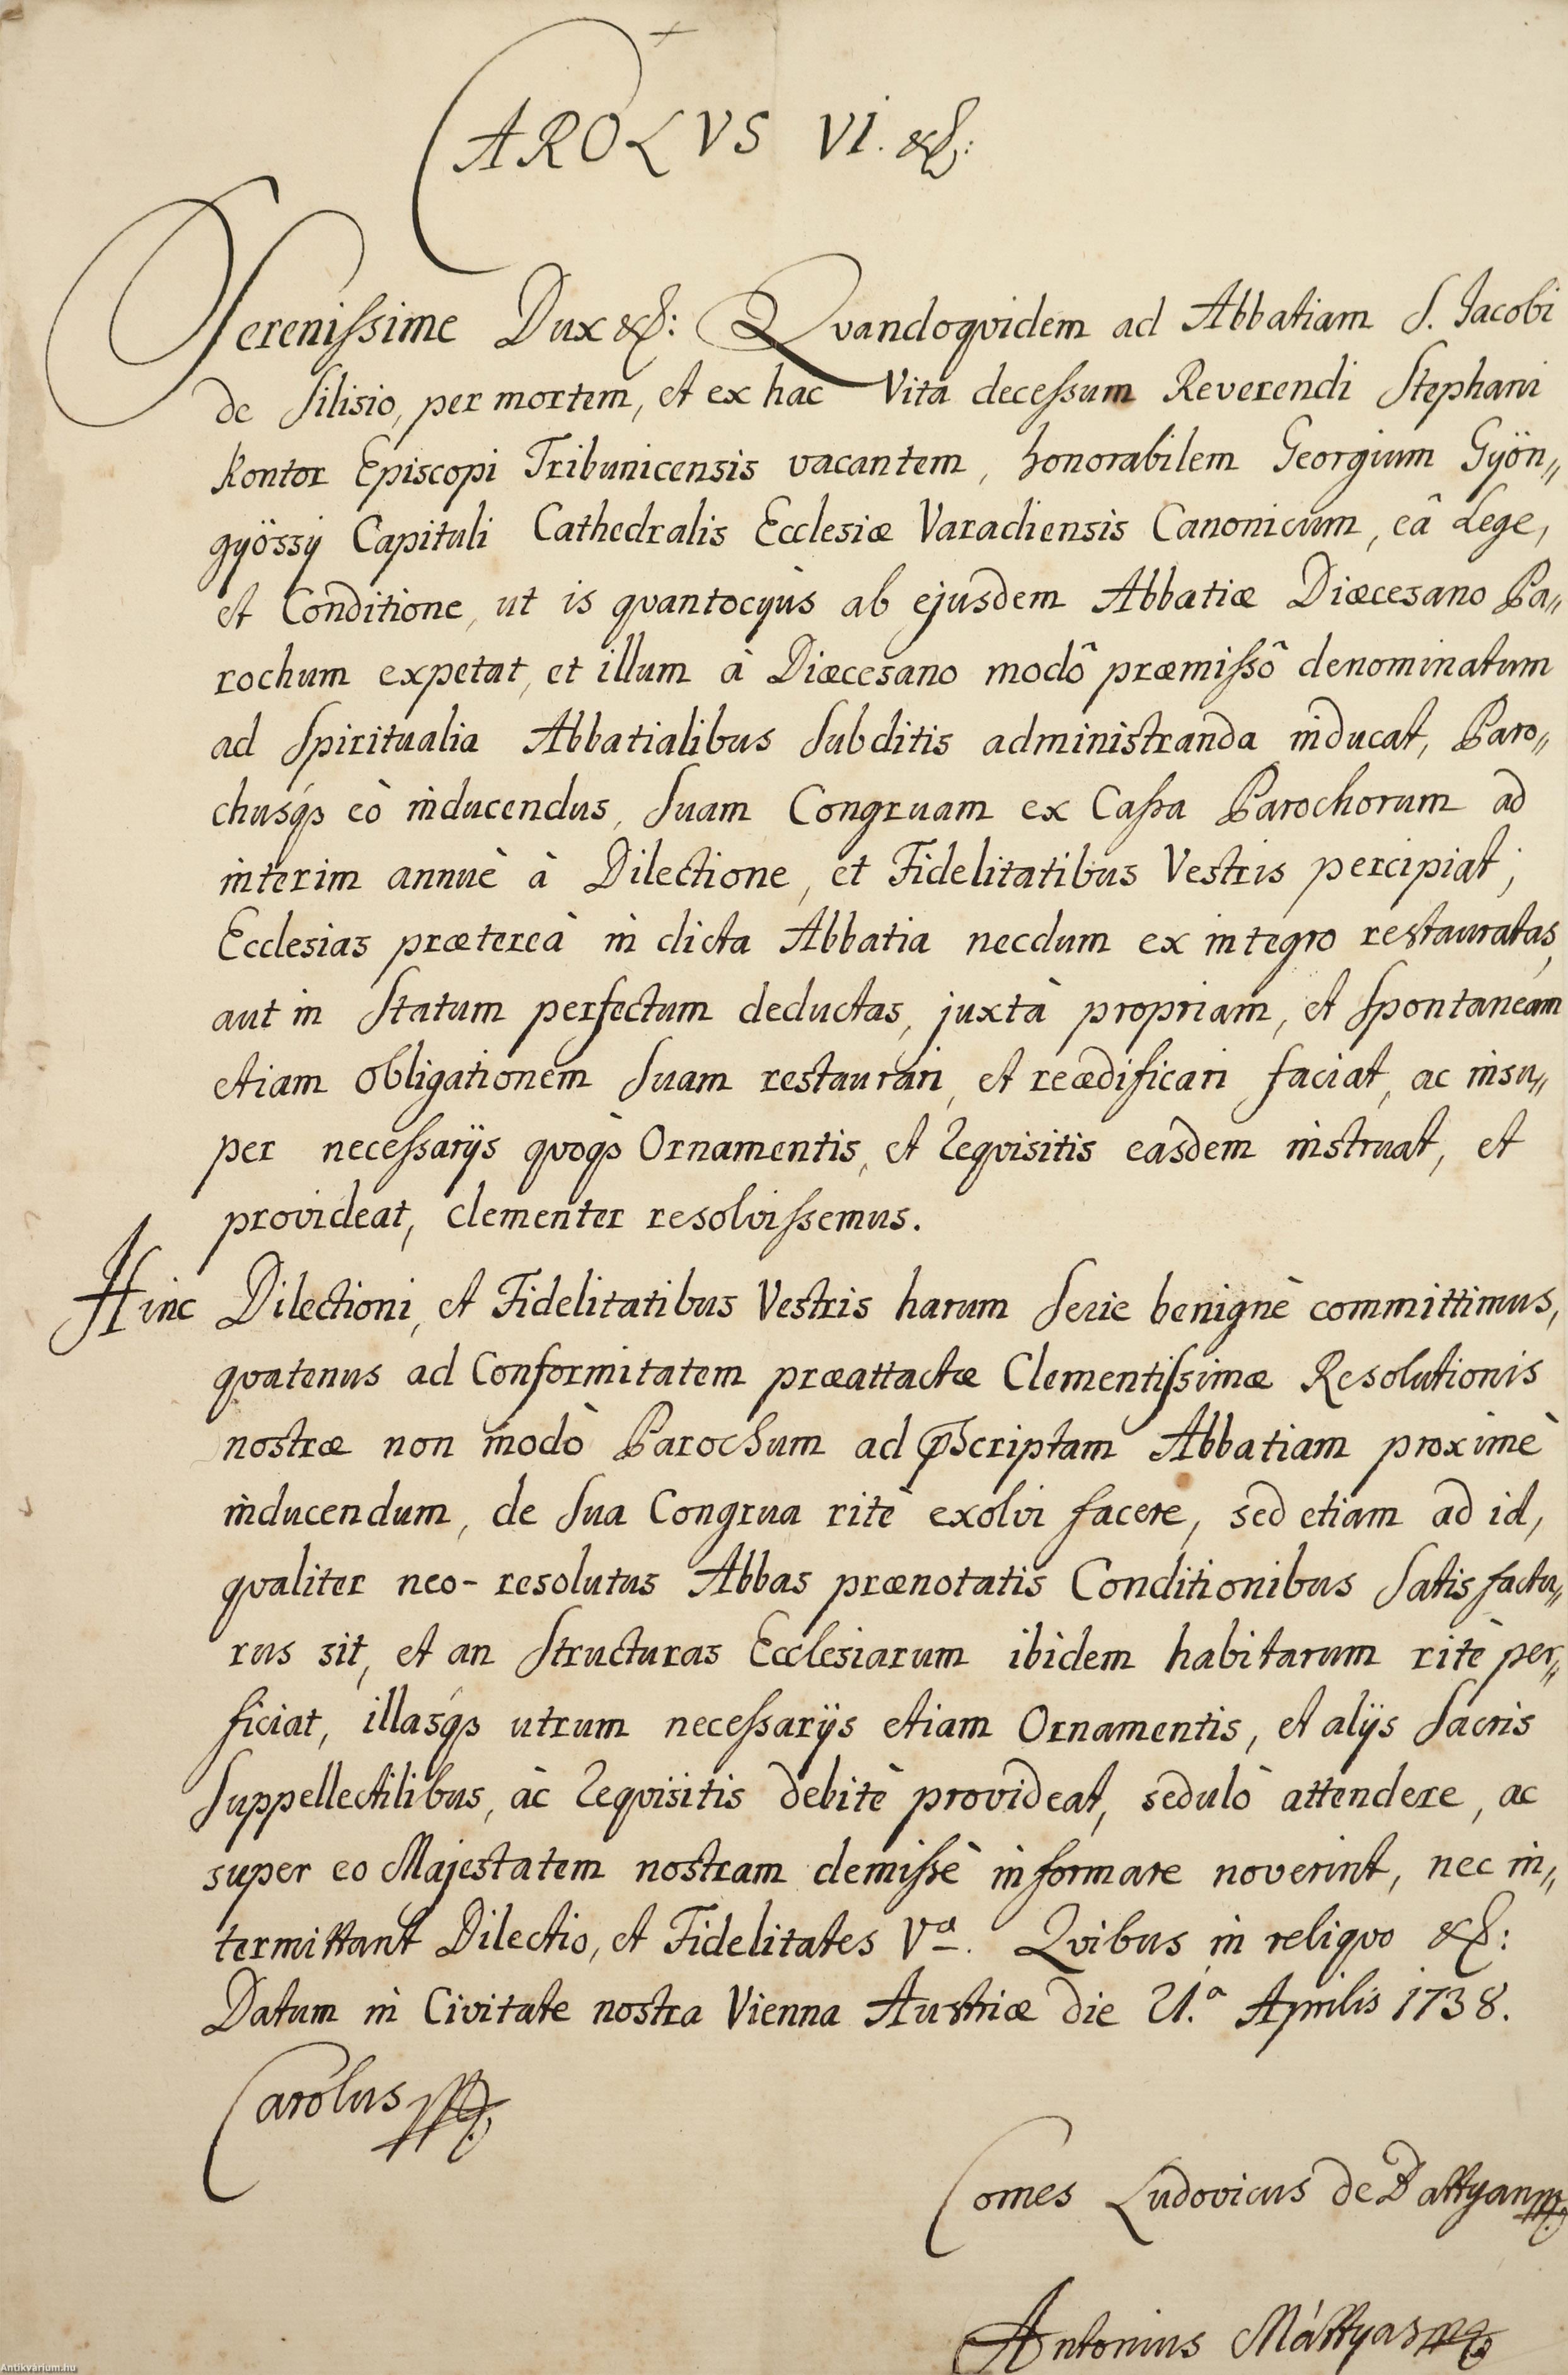 CAROLVS VI. &c:
Serenissime Dux &c: Qvandoqvidem ad Abbatiam S. Jacobi
de Silisio, per mortem, et ex hac Vita decessum Reverendi Stephani
Kontor Episcopi Tribunicensis vacantem, honorabilem Georgium Gyön„
gyössÿ Capituli Cathedralis Ecclesiæ Varadiensis Canonicum, eâ Lege,
et Conditione, ut is qvantocyùs ab ejusdem Abbatiæ Diœcesano Pa„
rochum expetat, et illum à Diœcesano modô præmissô denominatum
ad Spiritualia Abbatialibus Subditis administranda inducat, Paro„
chusq́ꝫ eò inducendus, Suam Congruam ex Cassa Parochorum ad
interim annuè à Dilectione, et Fidelitatibus Vestris percipiat;
Ecclesias prætereà in dicta Abbatia necdum ex integro restauratas,
aut in Statum perfectum deductas, juxtà propriam, et Spontaneam
etiam obligationem Suam restaurari, et reædificari faciat, ac insu„
per necessarÿs qvoqꝫ Ornamentis, et Reqvisitis easdem instruat, et
provideat, clementer resolvissemus.
Hinc Dilectioni, et Fidelitatibus Vestris harum Serie benignè committimus,
qvatenus ad Conformitatem præattactæ Clementissimæ Resolutionis
nostræ non modò Parochum ad p̄scriptam Abbatiam proximè
inducendum, de Sua Congrua ritè exolvi facere, sed etiam ad id,
qvaliter neo-resolutus Abbas prænotatis Conditionibus Satisfactu„
rus sit, et an Structuras Ecclesiarum ibidem habitarum ritè per„
ficiat, illasq́ꝫ utrum necessarÿs etiam Ornamentis, et alÿs Sacris
Suppellectilibus, àc Reqvisitis debitè provideat, sedulò attendere, ac
super eo Majestatem nostram demissè informare noverint, nec in„
termittant Dilectio, et Fidelitates Vᵃ. Qvibus in reliqvo &c:
Datum in Civitate nostra Vienna Austriæ die 21.ᵃ Aprilis 1738.
Carolus mp.
Comes Ludovicus de Battyan mp.
Antonius Máttyas mp.
Antikvárium.hu